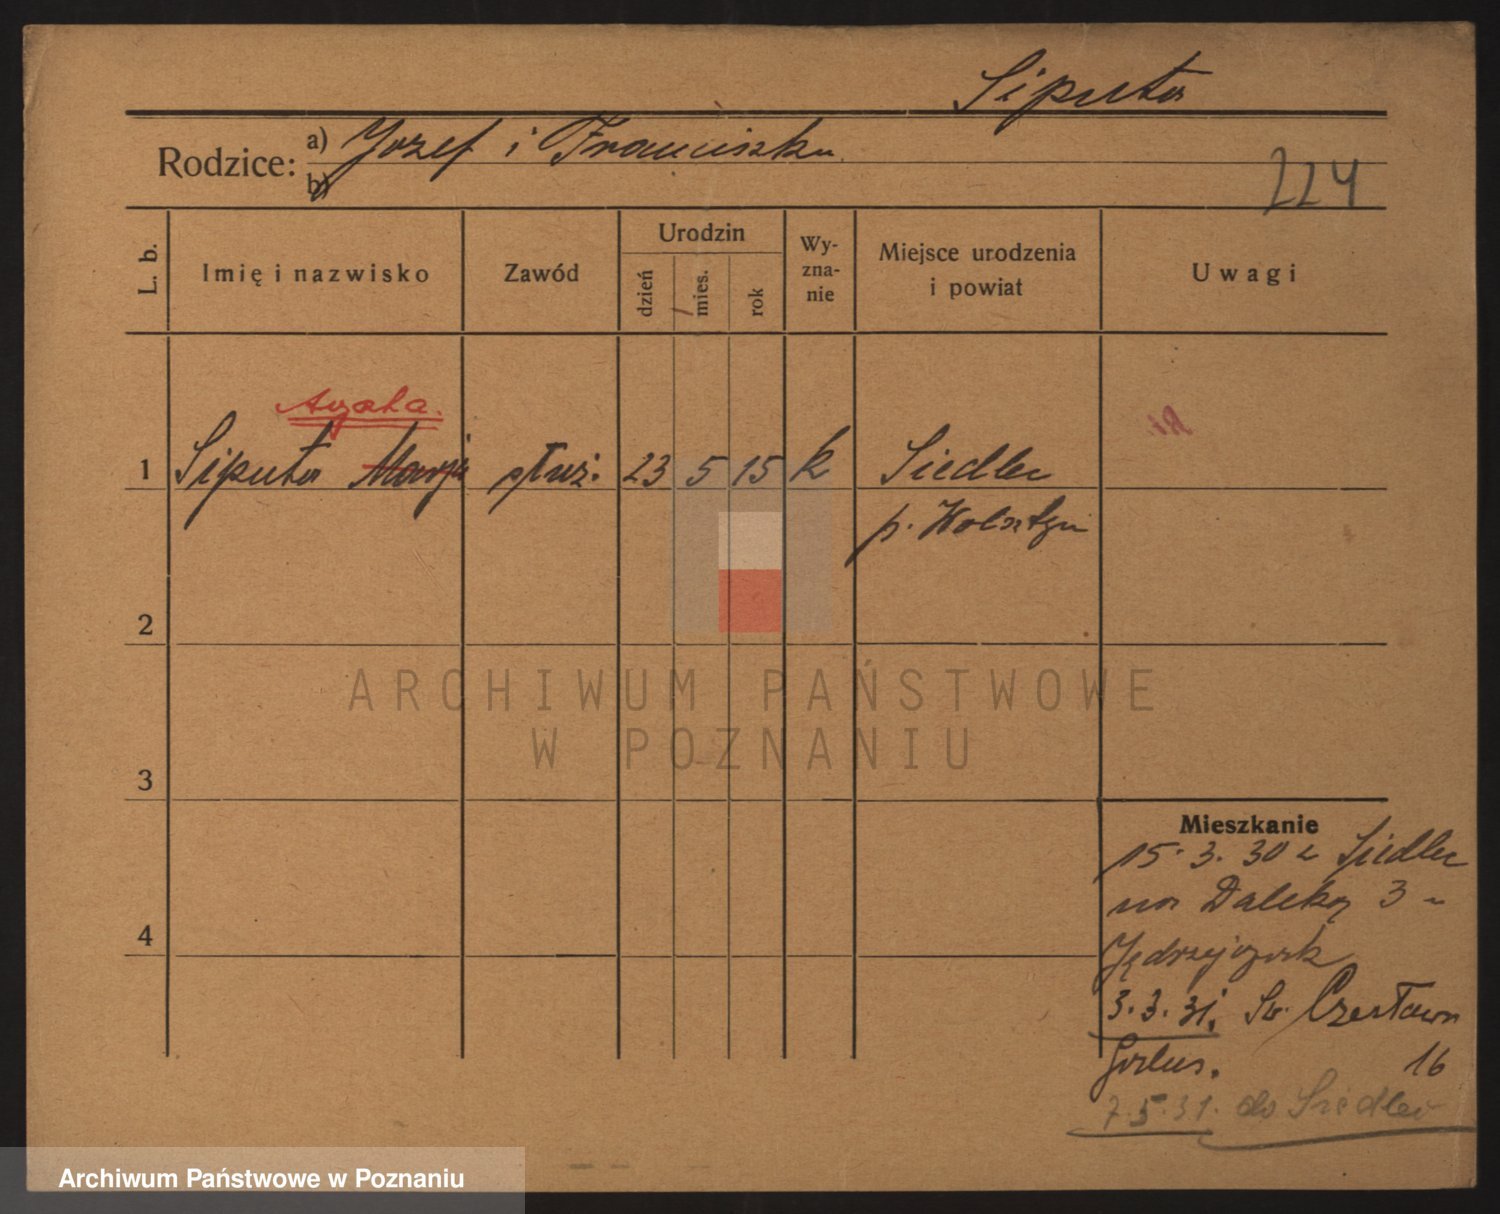 Siputa
Rodzice: a) Jozef i Franciszka
b)
224
L. b.
Imię i nazwisko
Zawód
Urodzin
dzień
mies.
rok
Wy-
zna-
nie
Miejsce urodzenia
i powiat
Uwagi
Agata.
1 Siputa Marja służ. 23 5 15 k Siedlec
p. Wolsztyn
2
3
4
ARCHIWUM PAŃSTWOWE
W POZNANIU
Mieszkanie
15. 3. 30 z Siedlec
na Daleką 3 u
3. 3. 31. Św. Czesława
16
7. 5. 31. do Siedlec
Archiwum Państwowe w Poznaniu